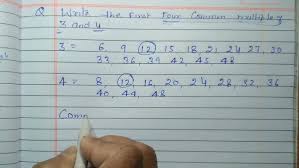 Q Write the first Four Common multiple of
3 and 4
3 = 6, 9 12 15 18, 21, 24, 27, 30,
33, 36, 39, 42, 45, 48
4 = 8, 12, 16, 20, 24, 28, 32, 36
40, 44, 48
Comm